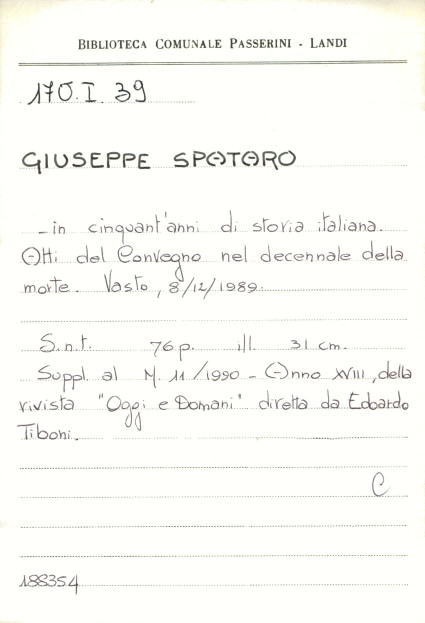 BIBLIOTECA COMUNALE PASSERINI - LANDI
170.I.39
GIUSEPPE SPATARO
- in cinquant'anni di storia italiana.
Atti del Convegno nel decennale della
morte. Vasto, 8/12/1989.
S.n.t. 76 p. ill. 31 cm.
Suppl. al N. 11/1990 - Anno XVIII, della
rivista "Oggi e Domani" diretta da Edoardo
Tiboni.
C
188354